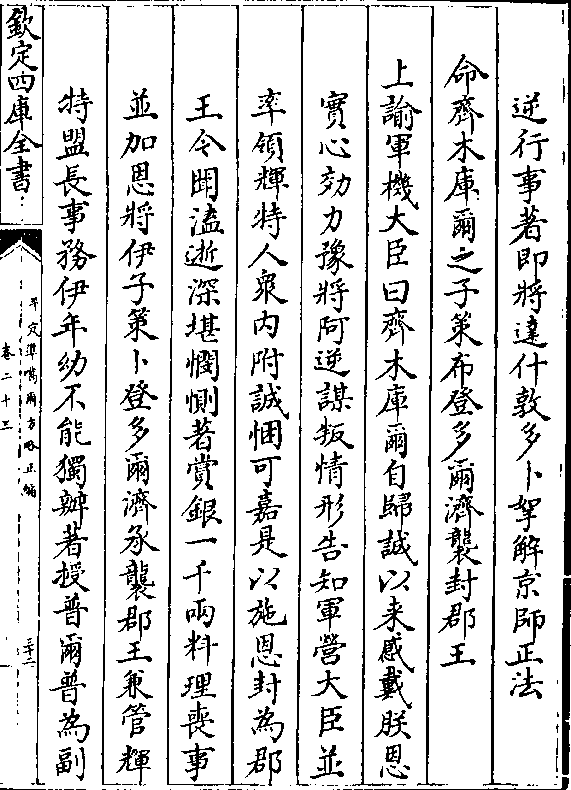 逆行事著即將達什敦多卜拏解京師正法
命齊木庫爾之子策布登多爾濟襲封郡王
上諭軍機大臣曰齊木庫爾自歸誠以来感戴朕恩
實心効力豫將阿逆謀叛情形告知軍營大臣並
率領輝特人衆内附誠悃可嘉是以施恩封為郡
王今聞溘逝深堪憫惻著賞銀一千兩料理喪事
並加恩將伊子策卜登多爾濟承襲郡王兼管輝
特盟長事務伊年幼不能獨辦著授普爾普為副
欽定四庫全書
平定準噶爾方略正編
卷二十三
三十二